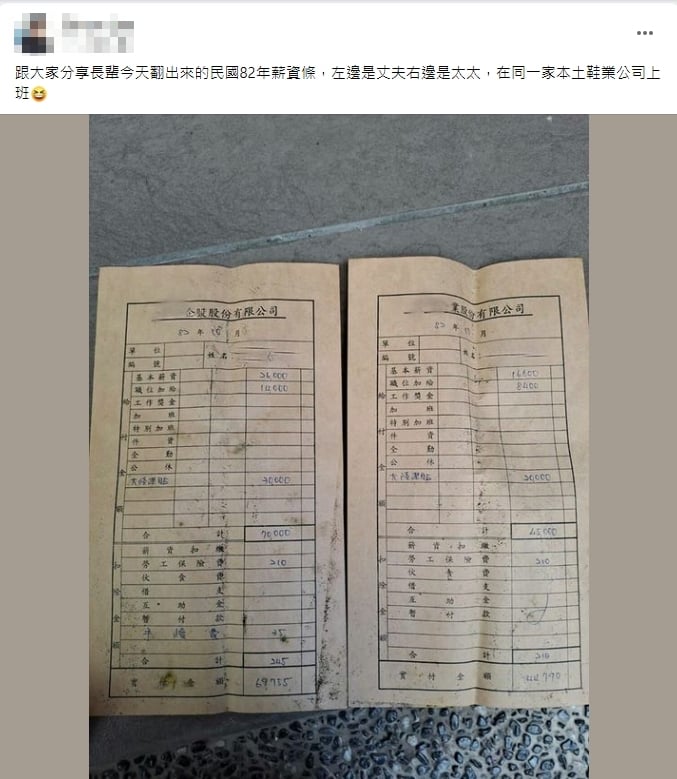 跟大家分享長輩今天翻出來的民國82年薪資條，左邊是丈夫右邊是太太，在同一家本土鞋業公司上
班😆
股份有限公司
82 年 月
單位
編號 姓名
基本薪資 26,000
職位加給 14,000
工作獎金
加班
特別加班
件資
全勤
公休
大陸津貼 30000
合計 70,000
薪資扣繳
勞工保險費 210
伙食費
借支
互助金
暫付款
費 35
合計 245
實付金額 69755
給付金額
扣除金額
業股份有限公司
82 年 月
單位
編號 姓名
基本薪資 16600
職位加給 8400
工作獎金
加班
特別加班
件資
全勤
公休
大陸津貼 20000
合計 45,000
薪資扣繳
勞工保險費 210
伙食費
借支
互助金
暫付款
合計 210
實付金額 44790
給付金額
扣除金額